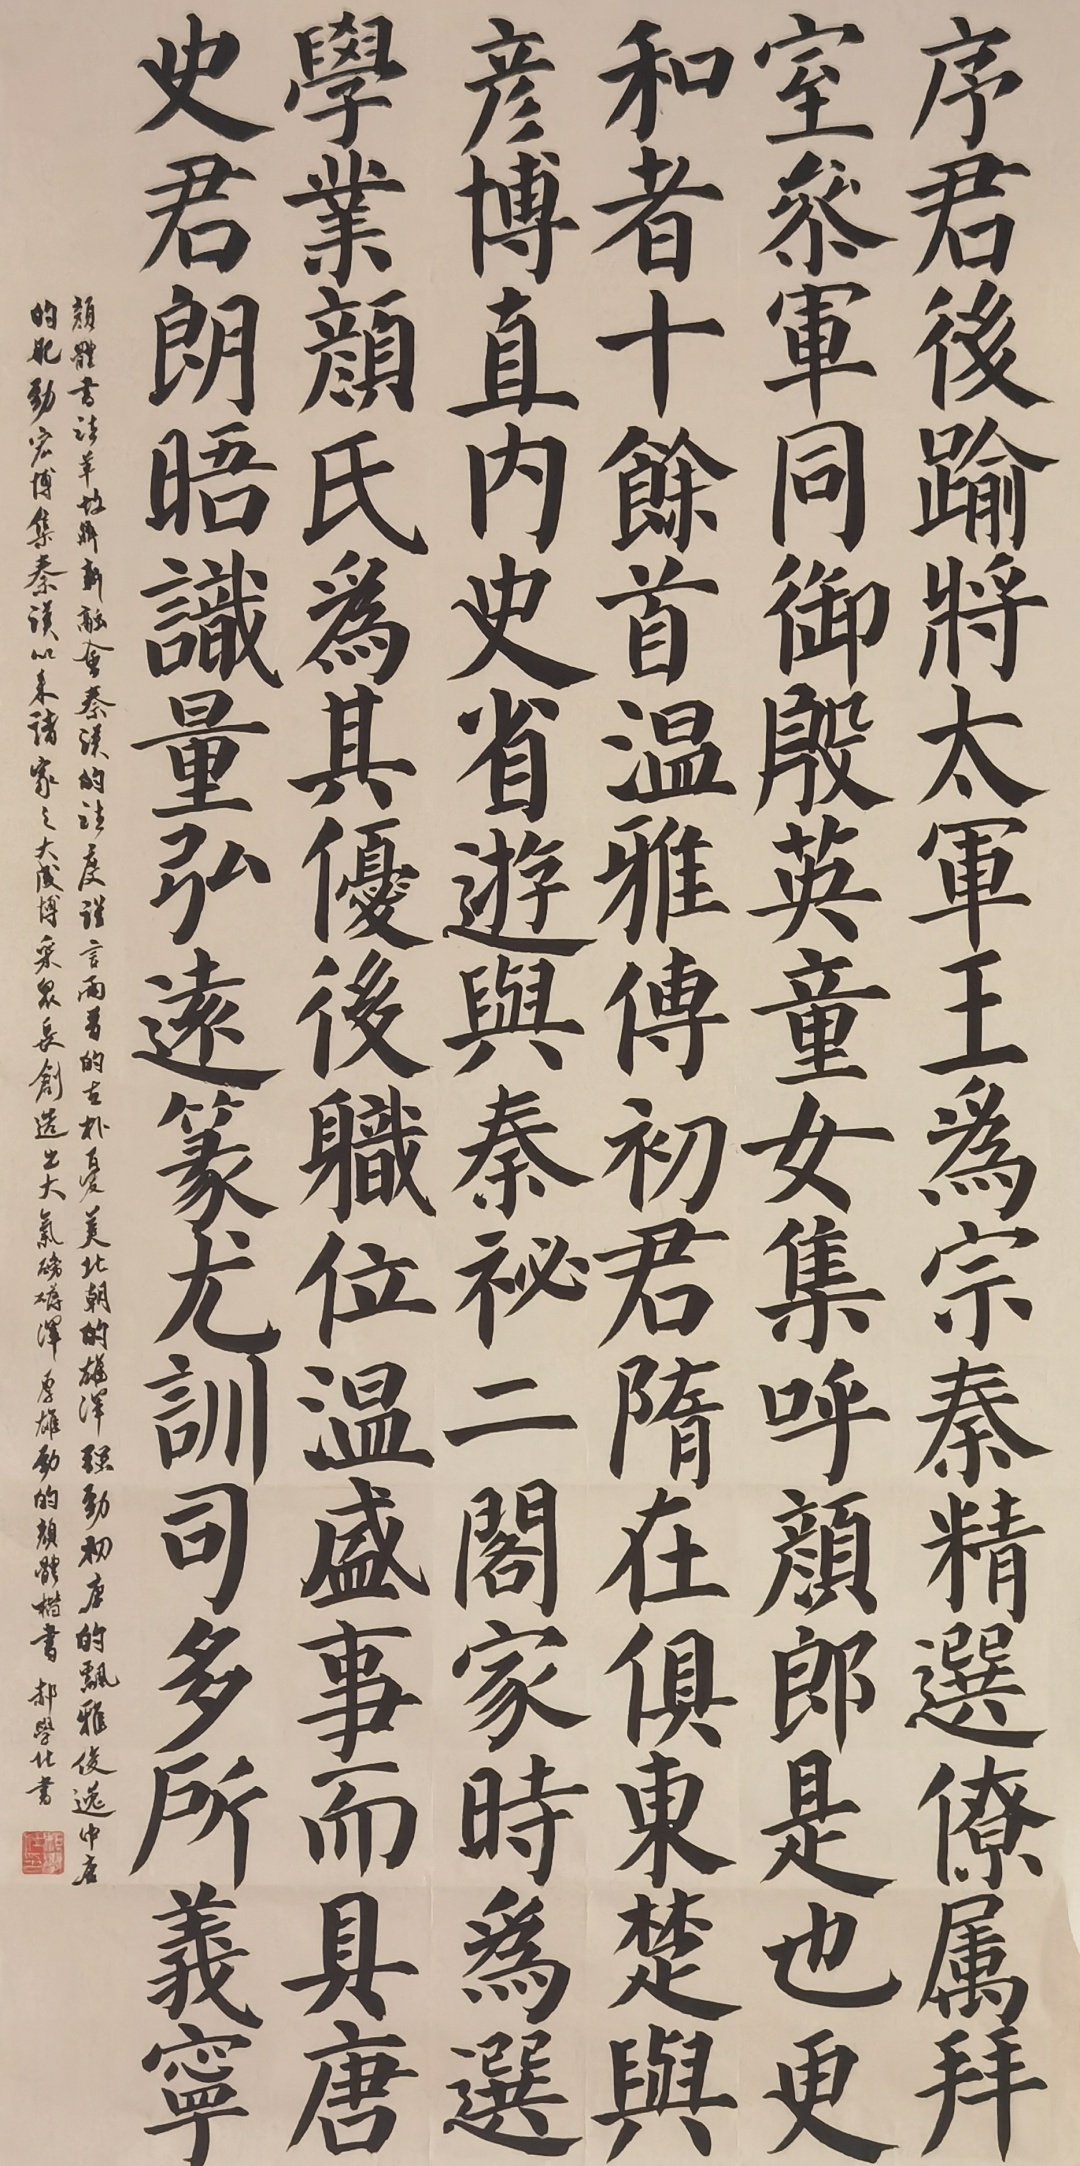 序君後踰將太軍王爲宗秦精選僚属拜
室叅軍同御殷英童女集呼顔郎是也更
和者十餘首温雅傳初君隋在俱東楚與
彦博直内史省遊與秦祕二閣家時爲選
學業顔氏爲其優後職位温盛事而具唐
史君朗晤識量弘遠篆尤訓司多所義寧
顔體書法革故鼎新融會秦漢的法度謹言兩晋的古朴憂美北朝的雄渾强勁初唐的飄雅俊逸中唐
的肥勁宏博集秦漢以來諸家之大成博采衆長創造出大氣磅礴渾厚雄勁的顔體楷書 郝學仕書